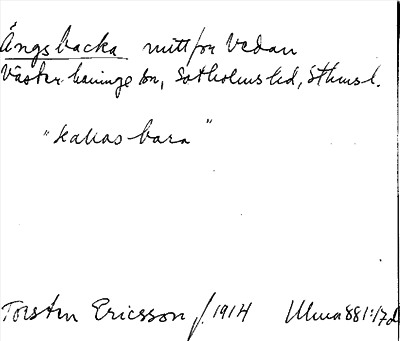 Ängsbacka mitt för Vedan
Västerhaninge sn, Sotholms hd, Sthms l.
"kallas bara"
Torsten Ericsson f. 1914 Ulma 881:17d